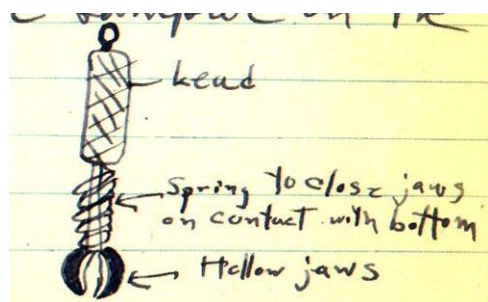 sampler on the
lead
Spring to close jaws
on contact with bottom
Hollow jaws